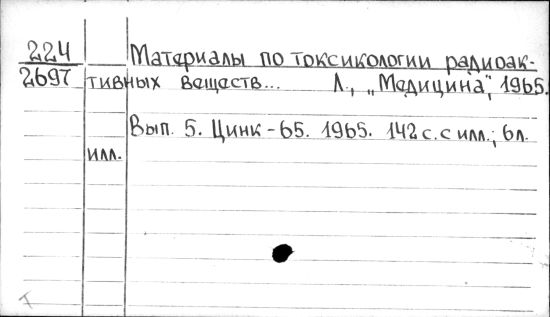 224
2697
Материалы по токсикологии радиоак-
тивных веществ... Л., „Медицина", 1965.
Вып. 5. Цинк-65. 1965. 142 с. с илл.; 6л.
илл.
T